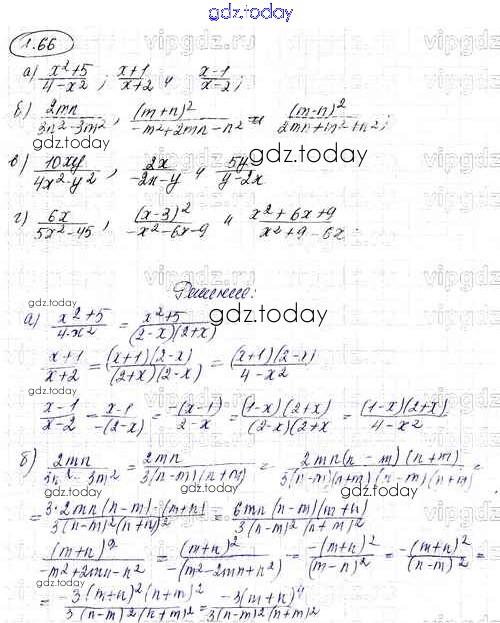 gdz.today
1.66
а) \frac{x^2+5}{4-x^2}; \frac{x+1}{x+2} и \frac{x-1}{x-2};
б) \frac{2mn}{3n^2-3m^2}, \frac{(m+n)^2}{-m^2+2mn-n^2} и \frac{(m-n)^2}{2mn+m^2+n^2};
в) \frac{10xy}{4x^2-y^2}, \frac{2x}{-2x-y} и \frac{5y}{y-2x}
г) \frac{6x}{5x^2-45}, \frac{(x-3)^2}{-x^2-6x-9} и \frac{x^2+6x+9}{x^2+9-6x}.
Решение:
а) \frac{x^2+5}{4-x^2} = \frac{x^2+5}{(2-x)(2+x)}
\frac{x+1}{x+2} = \frac{(x+1)(2-x)}{(2+x)(2-x)} = \frac{(x+1)(2-x)}{4-x^2}
\frac{x-1}{x-2} = \frac{x-1}{-(2-x)} = \frac{-(x-1)}{2-x} = \frac{(1-x)(2+x)}{(2-x)(2+x} = \frac{(1-x)(2+x)}{4-x^2}
б) \frac{2mn}{3n^2-3m^2} = \frac{2mn}{3(n-m)(n+m)} = \frac{2mn(n-m)(n+m)}{3(n-m)(n+m)(n-m)(n+m)} =
= \frac{3·2mn(n-m)·(m+n)}{3(n-m)^2(n+m)^2} = \frac{6mn(n-m)(m+n)}{3(n-m)^2(n+m)^2}
\frac{(m+n)^2}{-m^2+2mn-n^2} = \frac{(m+n)^2}{-(m^2-2mn+n^2)} = \frac{-(m+n)^2}{(m-n)^2} = \frac{-(m+n)^2}{(n-m)^2} =
= \frac{-3(m+n)^2(n+m)^2}{3(n-m)^2(n+m)^2} = \frac{-3(m+n)^4}{3(n-m)^2(n+m)^2}